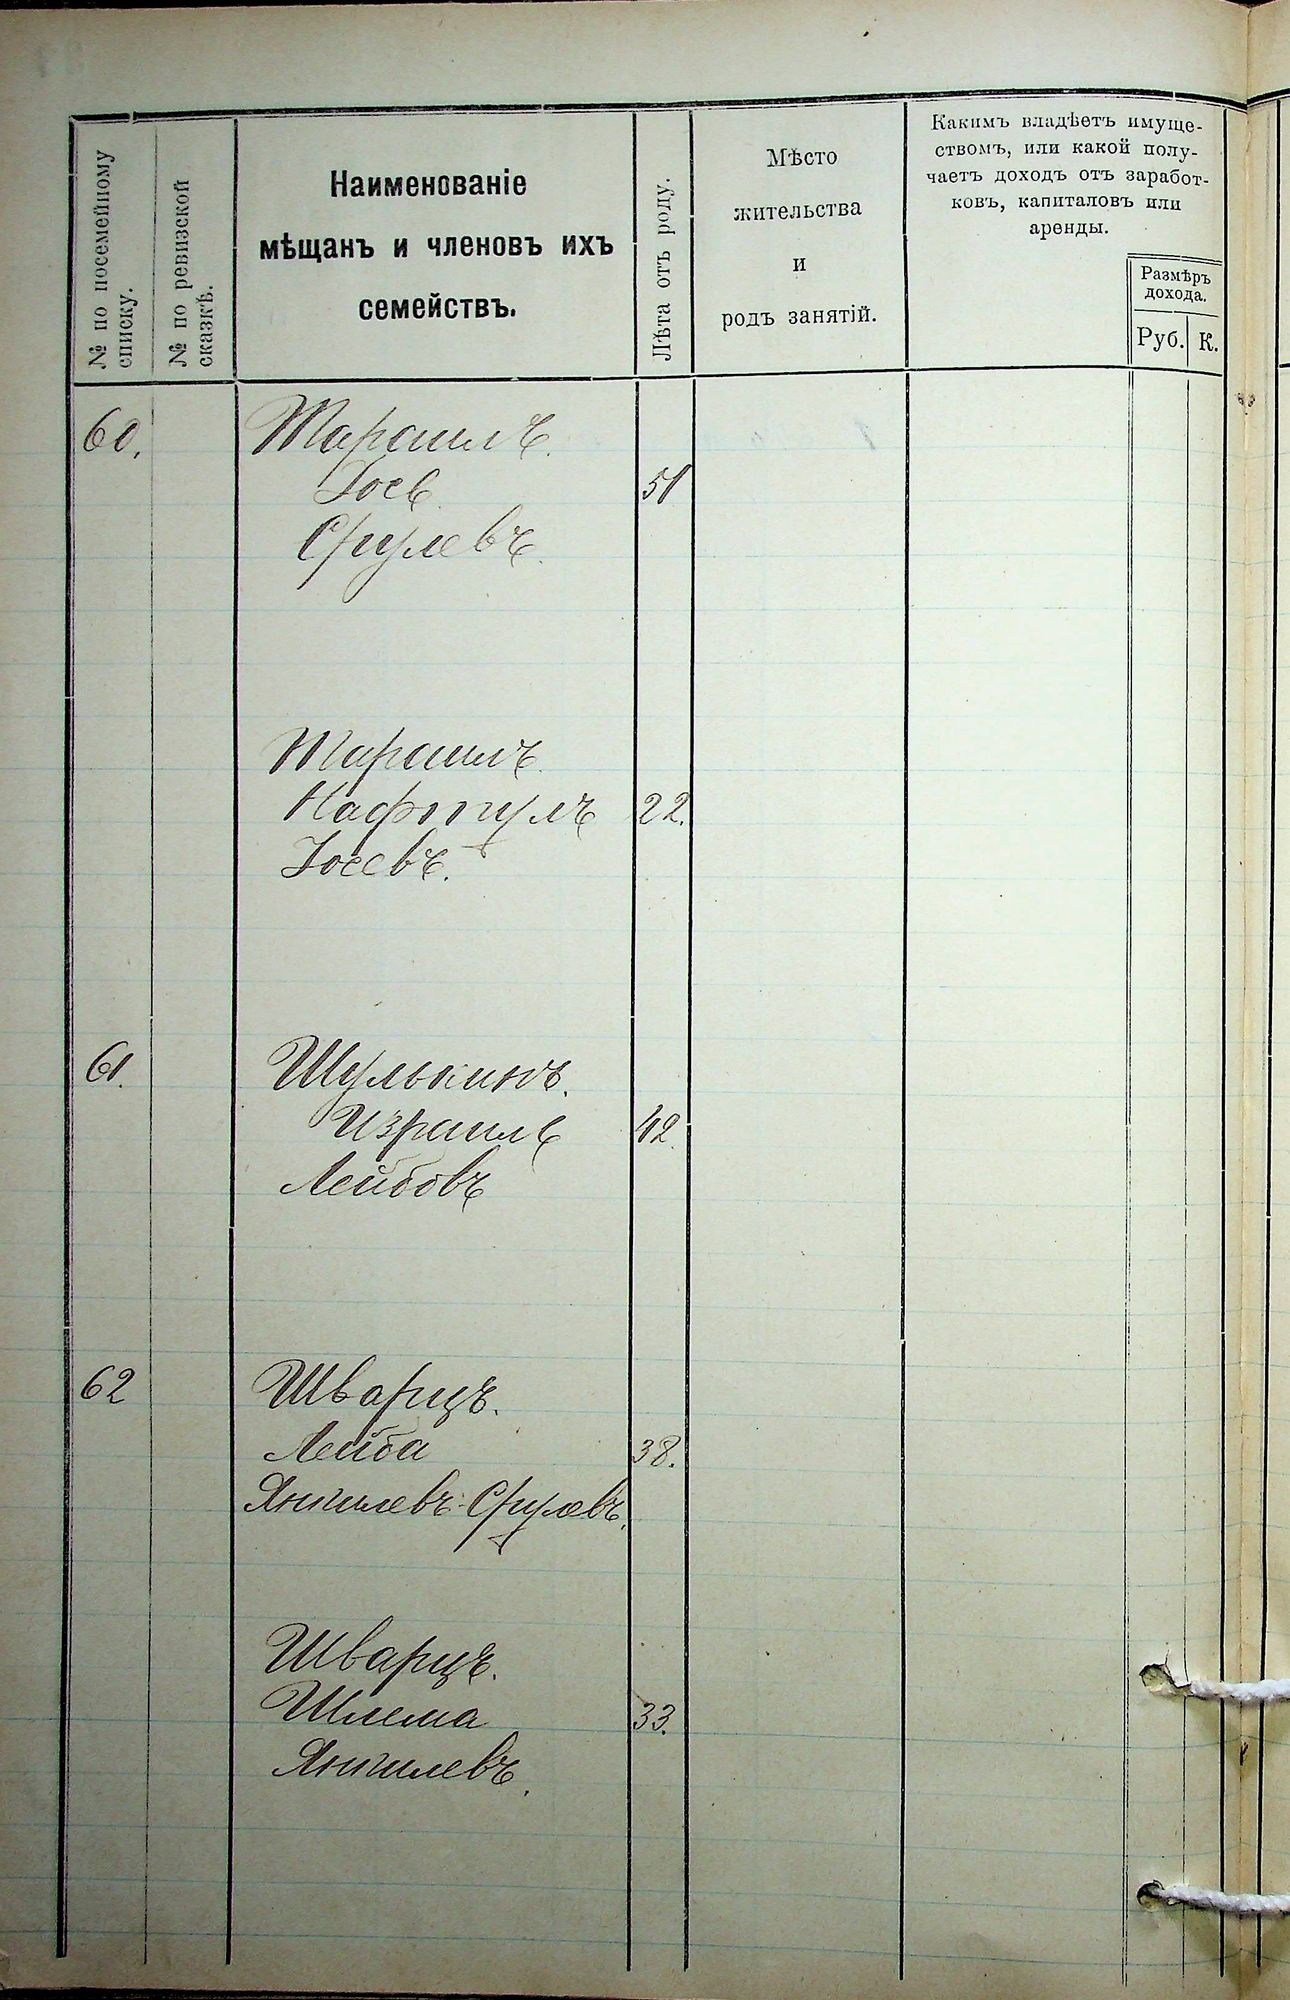 № по посемейному
списку.
№ по ревизской
сказкѣ.
Наименованіе
мѣщанъ и членовъ ихъ
семействъ.
Лѣта отъ роду.
Мѣсто
жительства
и
родъ занятій.
Какимъ владѣетъ имуще-
ствомъ, или какой полу-
чаетъ доходъ отъ заработ-
ковъ, капиталовъ или
аренды.
Размѣръ
дохода.
Руб. К.
60.
Іосе 51
Срулевъ.
22.
Іосевъ.
61. Шулькинъ.
Израиль 42.
Лейбовъ
62 Шварцъ.
Лейба 38.
Янкилевъ-Срулевъ.
Шварцъ.
Шлема 33.
Янкилевъ.